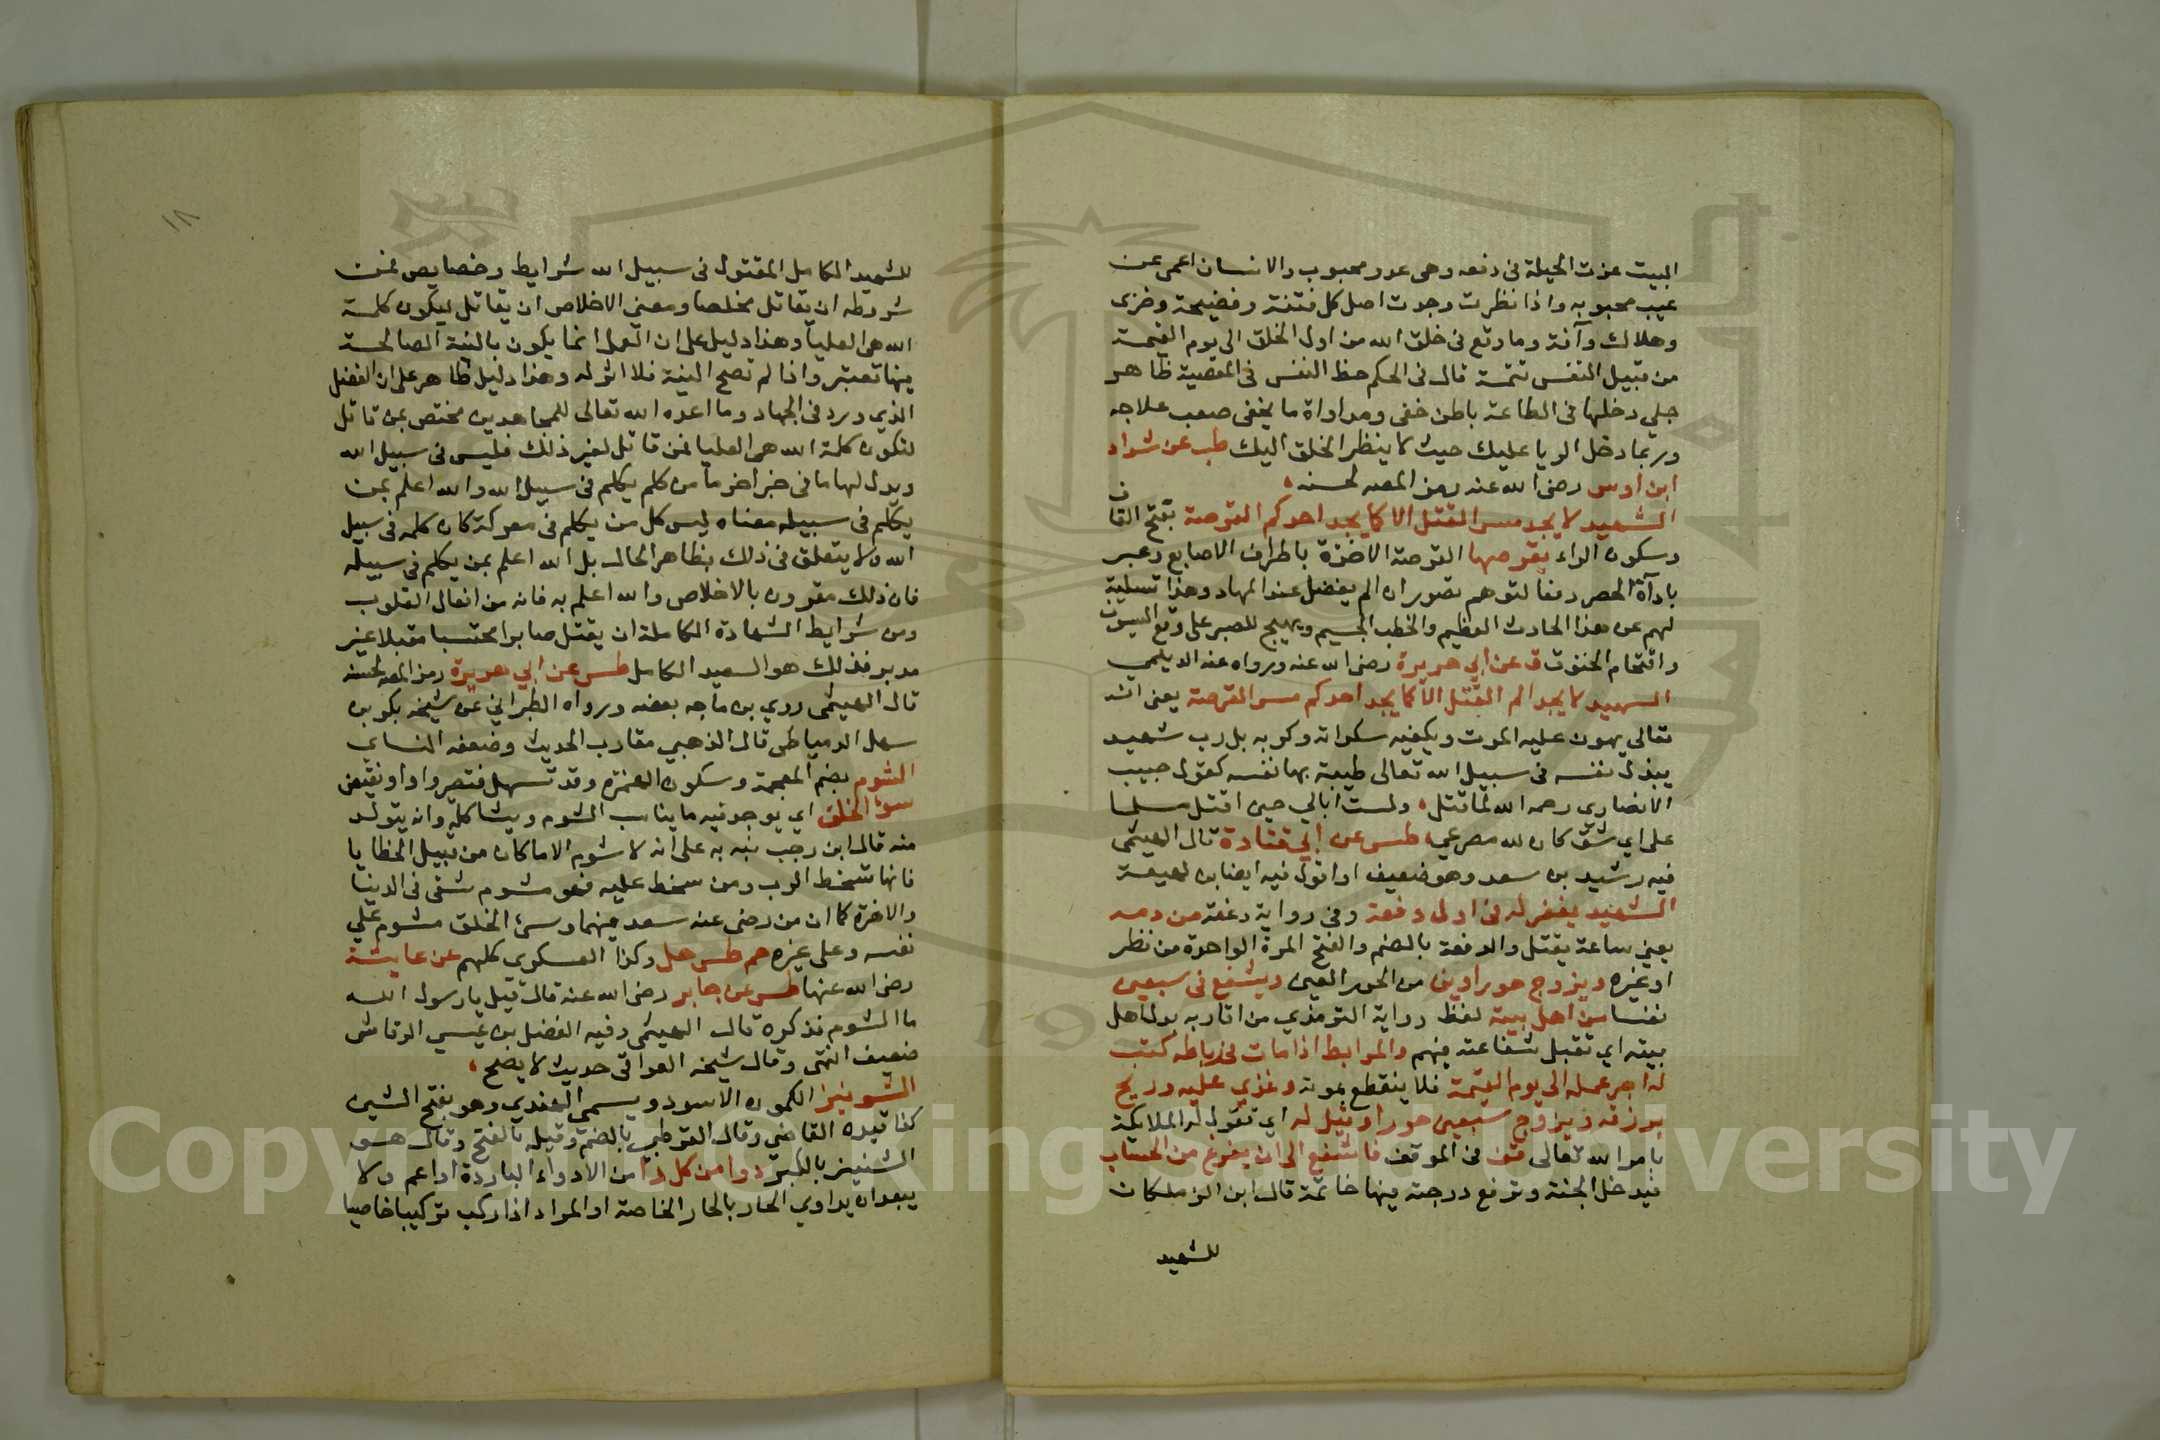 البيت عزت الحيلة فى دفعه وهى عدو محبوب والانسان اعمى عن
عيب محبوبه واذا نظرت وجدت اصل كل فتنة وفضيحة وخزى
وهلاك وآفة وما وقع فى خلق الله من اول الخلق الى يوم القيمة
من قبيل النفس تتمة قال فى الحكم حظ النفس فى المعصية ظاهر
جلي ودخلها فى الطاعة باطن خفى ومداواة ما يخفى صعب علاجه
وربما دخل الريا عليك حيث لا ينظر الخلق اليك طب عن شداد
ابن اوس رضى الله عنه رمز المصه لحسنه
الشهيد لا يجد مس القتل الا كما يجد احدكم القرصة بفتح القاف
وسكون الراء يقرصها القرصة الاخذة باطراف الاصابع وعبر
باداة الحصر دفعا لتوهم تصور ان الم يفضل عند المهاد وهذا تسلية
لهم عن هذا الحادث العظيم والخطب الجسيم ويهيج للصبر على وقع السيوف
واقتحام الحتوف ق عن ابي هريرة رضى الله عنه ورواه عنه الديلمي
الشهيد لا يجد الم القتل الا كما يجد احدكم مس القرصة يعنى انه
تعالى يهون عليه الموت ويكفيه سكراته وكربه بل رب شهيد
يبذل نفسه فى سبيل الله تعالى طيبة بها نفسه كقول حبيب
الانصارى رحمه الله لما قتل ولست ابالي حين اقتل مسلما
على اي شق كان لله مصرعي طس عن ابي قتادة قال الهيثمى
فيه رشيد بن سعد وهو ضعيف اواقول فيه ايضا بن لهيعة
الشهيد يغفر له فى اول دفعة وفى رواية دفقة من دمه
يعني ساعة يقتل والدفعة بالضم والفتح المرة الواحدة من نظر
او غيره ويزوج حوراوين من الحور العين ويشفع فى سبعين
نفسا من اهل بيته لفظ رواية الترمذي من اقاربه بدل اهل
بيته اي تقبل شفاعته فيهم والمرابط اذا مات فى رباطه كتب
له اجر عمله الى يوم القيمة فلا ينقطع بموته وغذي عليه وريح
برزقه ويزوج سبعين حورا وقيل له اي تقول له الملايكة
بامر الله تعالى قف فى الموقف فاشفع الى ان يفرغ من الحساب
فيدخل الجنة وترفع درجته فيها خاتمة قال ابن الزملكان
للشهيد
١٨
للشهيد الكامل المقتول فى سبيل الله شرايط وخصايص فمن
شروطه ان يقاتل مخلصا ومعنى الاخلاص ان يقاتل ليكون كلمة
الله هى العليا وهذا دليل على ان العمل انما يكون بالنية الصالحة
بها تعتبر واذا لم تصح النية فلا اثر له وهذا دليل ظاهر على ان الفضل
الذي ورد فى الجهاد وما اعده الله تعالى للمجاهدين مختص بمن قاتل
لتكون كلمة الله هى العليا فمن قاتل لغير ذلك فليس فى سبيل الله
ويدل لها ما فى خبر اخر ما من كلم يكلم فى سبيل الله والله اعلم بمن
يكلم فى سبيله معناه ليس كل من يكلم فى معركة كان كلمه فى سبيل
الله ولا يتعلق فى ذلك بظاهر الحال بل الله اعلم بمن يكلم فى سبيله
فان ذلك مقرون بالاخلاص والله اعلم به فانه من افعال القلوب
ومن شرايط الشهادة الكاملة ان يقتل صابرا محتسبا مقبلا غير
مدبر فذلك هو السعيد الكامل طس عن ابي هريرة رمز المصه لحسنه
قال الهيثمى روي بن ماجه بعضه ورواه الطبراني عن شيخه بكر بن
سهل الدمياطى قال الذهبي مقارب الحديث وضعفه النساي
الشوم بضم المعجمة وسكون الهمزة وقد تسهل فتصير واوا ونقيض
سوء الخلق اي يوجد فيه ما يناسب الشوم ويشاكله وانه يتولد
منه قال ابن رجب نبه به على انه لا شوم الا ما كان من قبيل الخطايا
فانها تسخط الرب ومن سخط عليه فهو مشوم شقى فى الدنيا
والاخرة كما ان من رضى عنه سعد فيهما وسئ الخلق مشوم علي
نفسه وعلى غيره حم طس حل وكذا العسكرى كلهم عن عايشة
رضى الله عنها طس عن جابر رضى الله عنه قال قيل يا رسول الله
ما الشوم فذكره قال الهيثمى وفيه الفضل بن عيسى الرقاشى
ضعيف انتهى وقال شيخه العراقى حديث لا يصح
الشونيز الكمون الاسود ويسمى الهندي وهو بفتح الشين
كذا قيده القاضى وقال القرطبي بالضم وقيل بالفتح وقال هو
الشنيز بالكسر دوا من كل دا من الادواء الباردة او اعم ولا
يبعد ان يداوي الحار بالحار الخاصة او المراد اذا ركب تركيبا خاصيا
Copyright © King Saud University